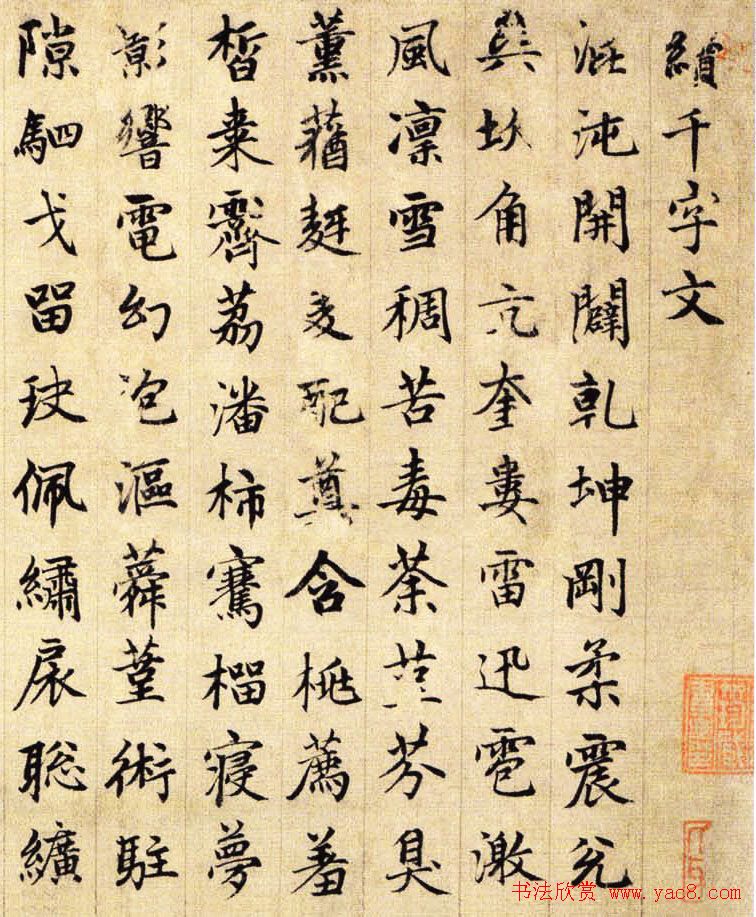 續千字文
混沌開闢乾坤剛柔震兌
巽坎角亢奎婁雷迅雹激
風凛雪稠苦毒荼芬臭
薰蕕麥配含桃薦羞
皙棗霽荔潘柿騫榴寢夢
影響電幻泡漚蕣菫術駐
隙駟戈留玦佩繡扆聡纊
书法欣赏 www.yac8.com